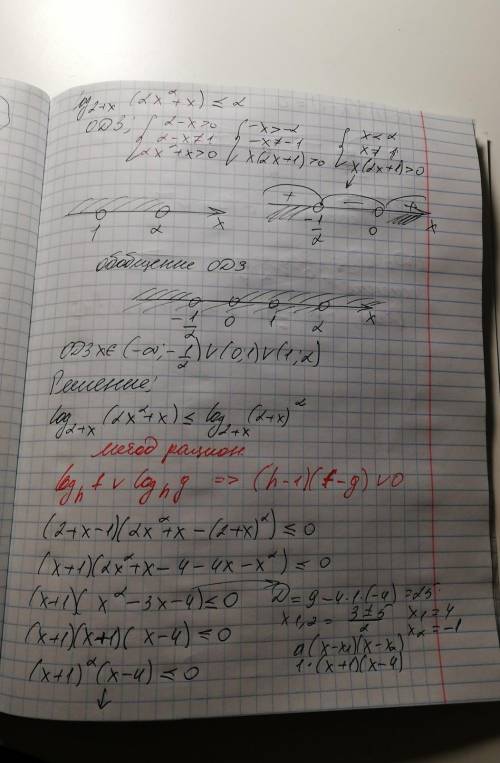 lg₂₊ₓ (2x²+x) ≤ 2
ОДЗ; { 2-x>0 { -x>-2 { x<2
2-x≠1 -x≠-1 x≠1
2x²+x>0 x(2x+1)>0 x(2x+1)>0
+ - +
1 2 x -1/2 0 x
обобщение ОДЗ
-1/2 0 1 2 x
ОДЗ x∈ (-∞;-1/2)∨(0,1)∨(1;2)
Решение;
log₂₊ₓ (2x²+x) ≤ log₂₊ₓ (2+x)²
метод рацион
logₕ f ∨ logₕ g => (h-1)(f-g) ∨ 0
(2+x-1)(2x²+x-(2+x)²) ≤ 0
(x+1)(2x²+x-4-4x-x²) ≤ 0
(x+1)( x²-3x-4) ≤ 0 D = 9-4·1·(-4) = 25
x₁,₂ = (3±5)/2 x₁ = 4
x₂ = -1
(x+1)(x+1)( x-4) ≤ 0 a(x-x₁)(x-x₂)
1·(x+1)(x-4)
(x+1)²(x-4) ≤ 0